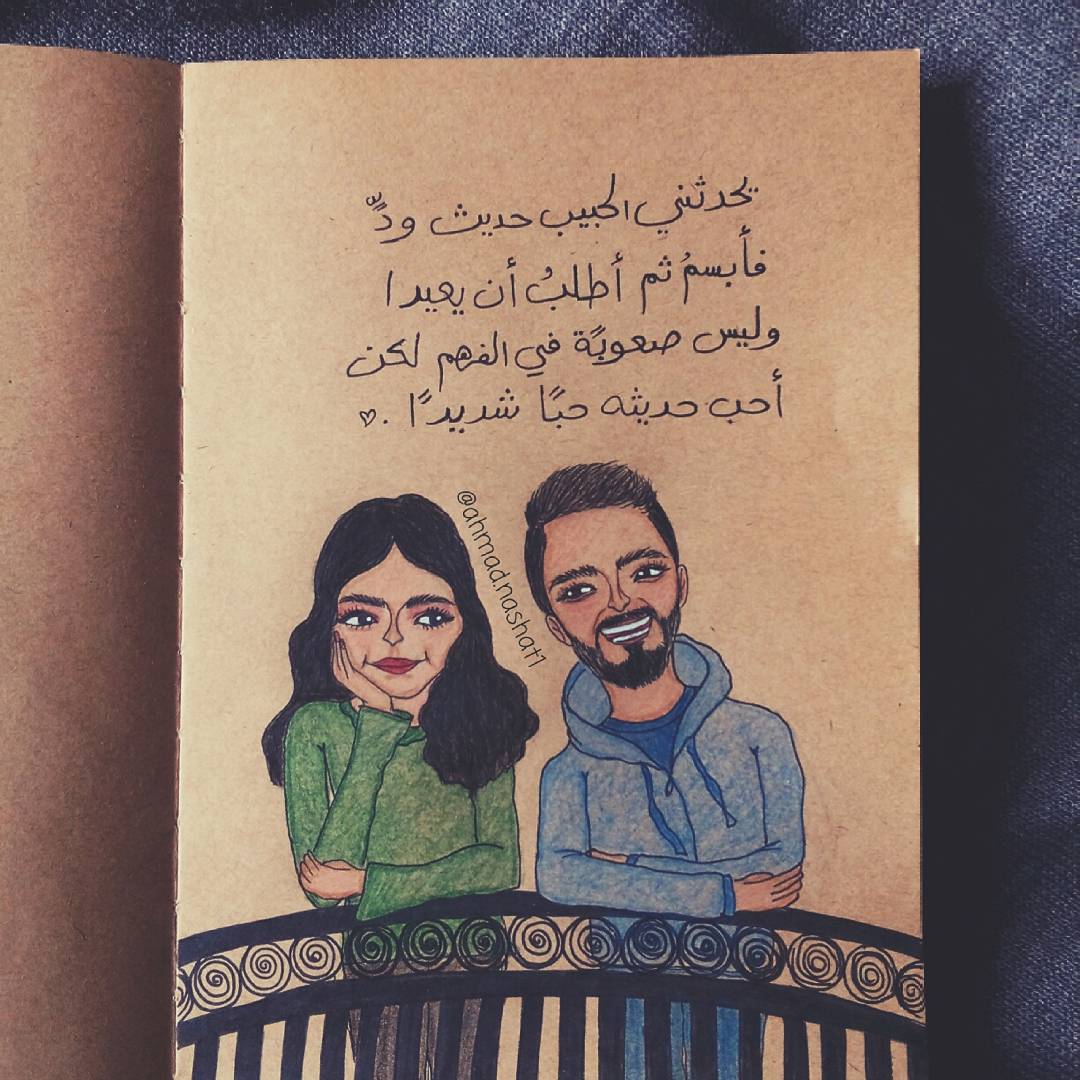 يحدثني الحبيب حديث ودٍّ
فأبسمُ ثم أطلبُ أن يعيدا
وليس صعوبًة في الفهم لكن
أحب حديثه حبًا شديدًا . ♡
@ahmad.nashat1